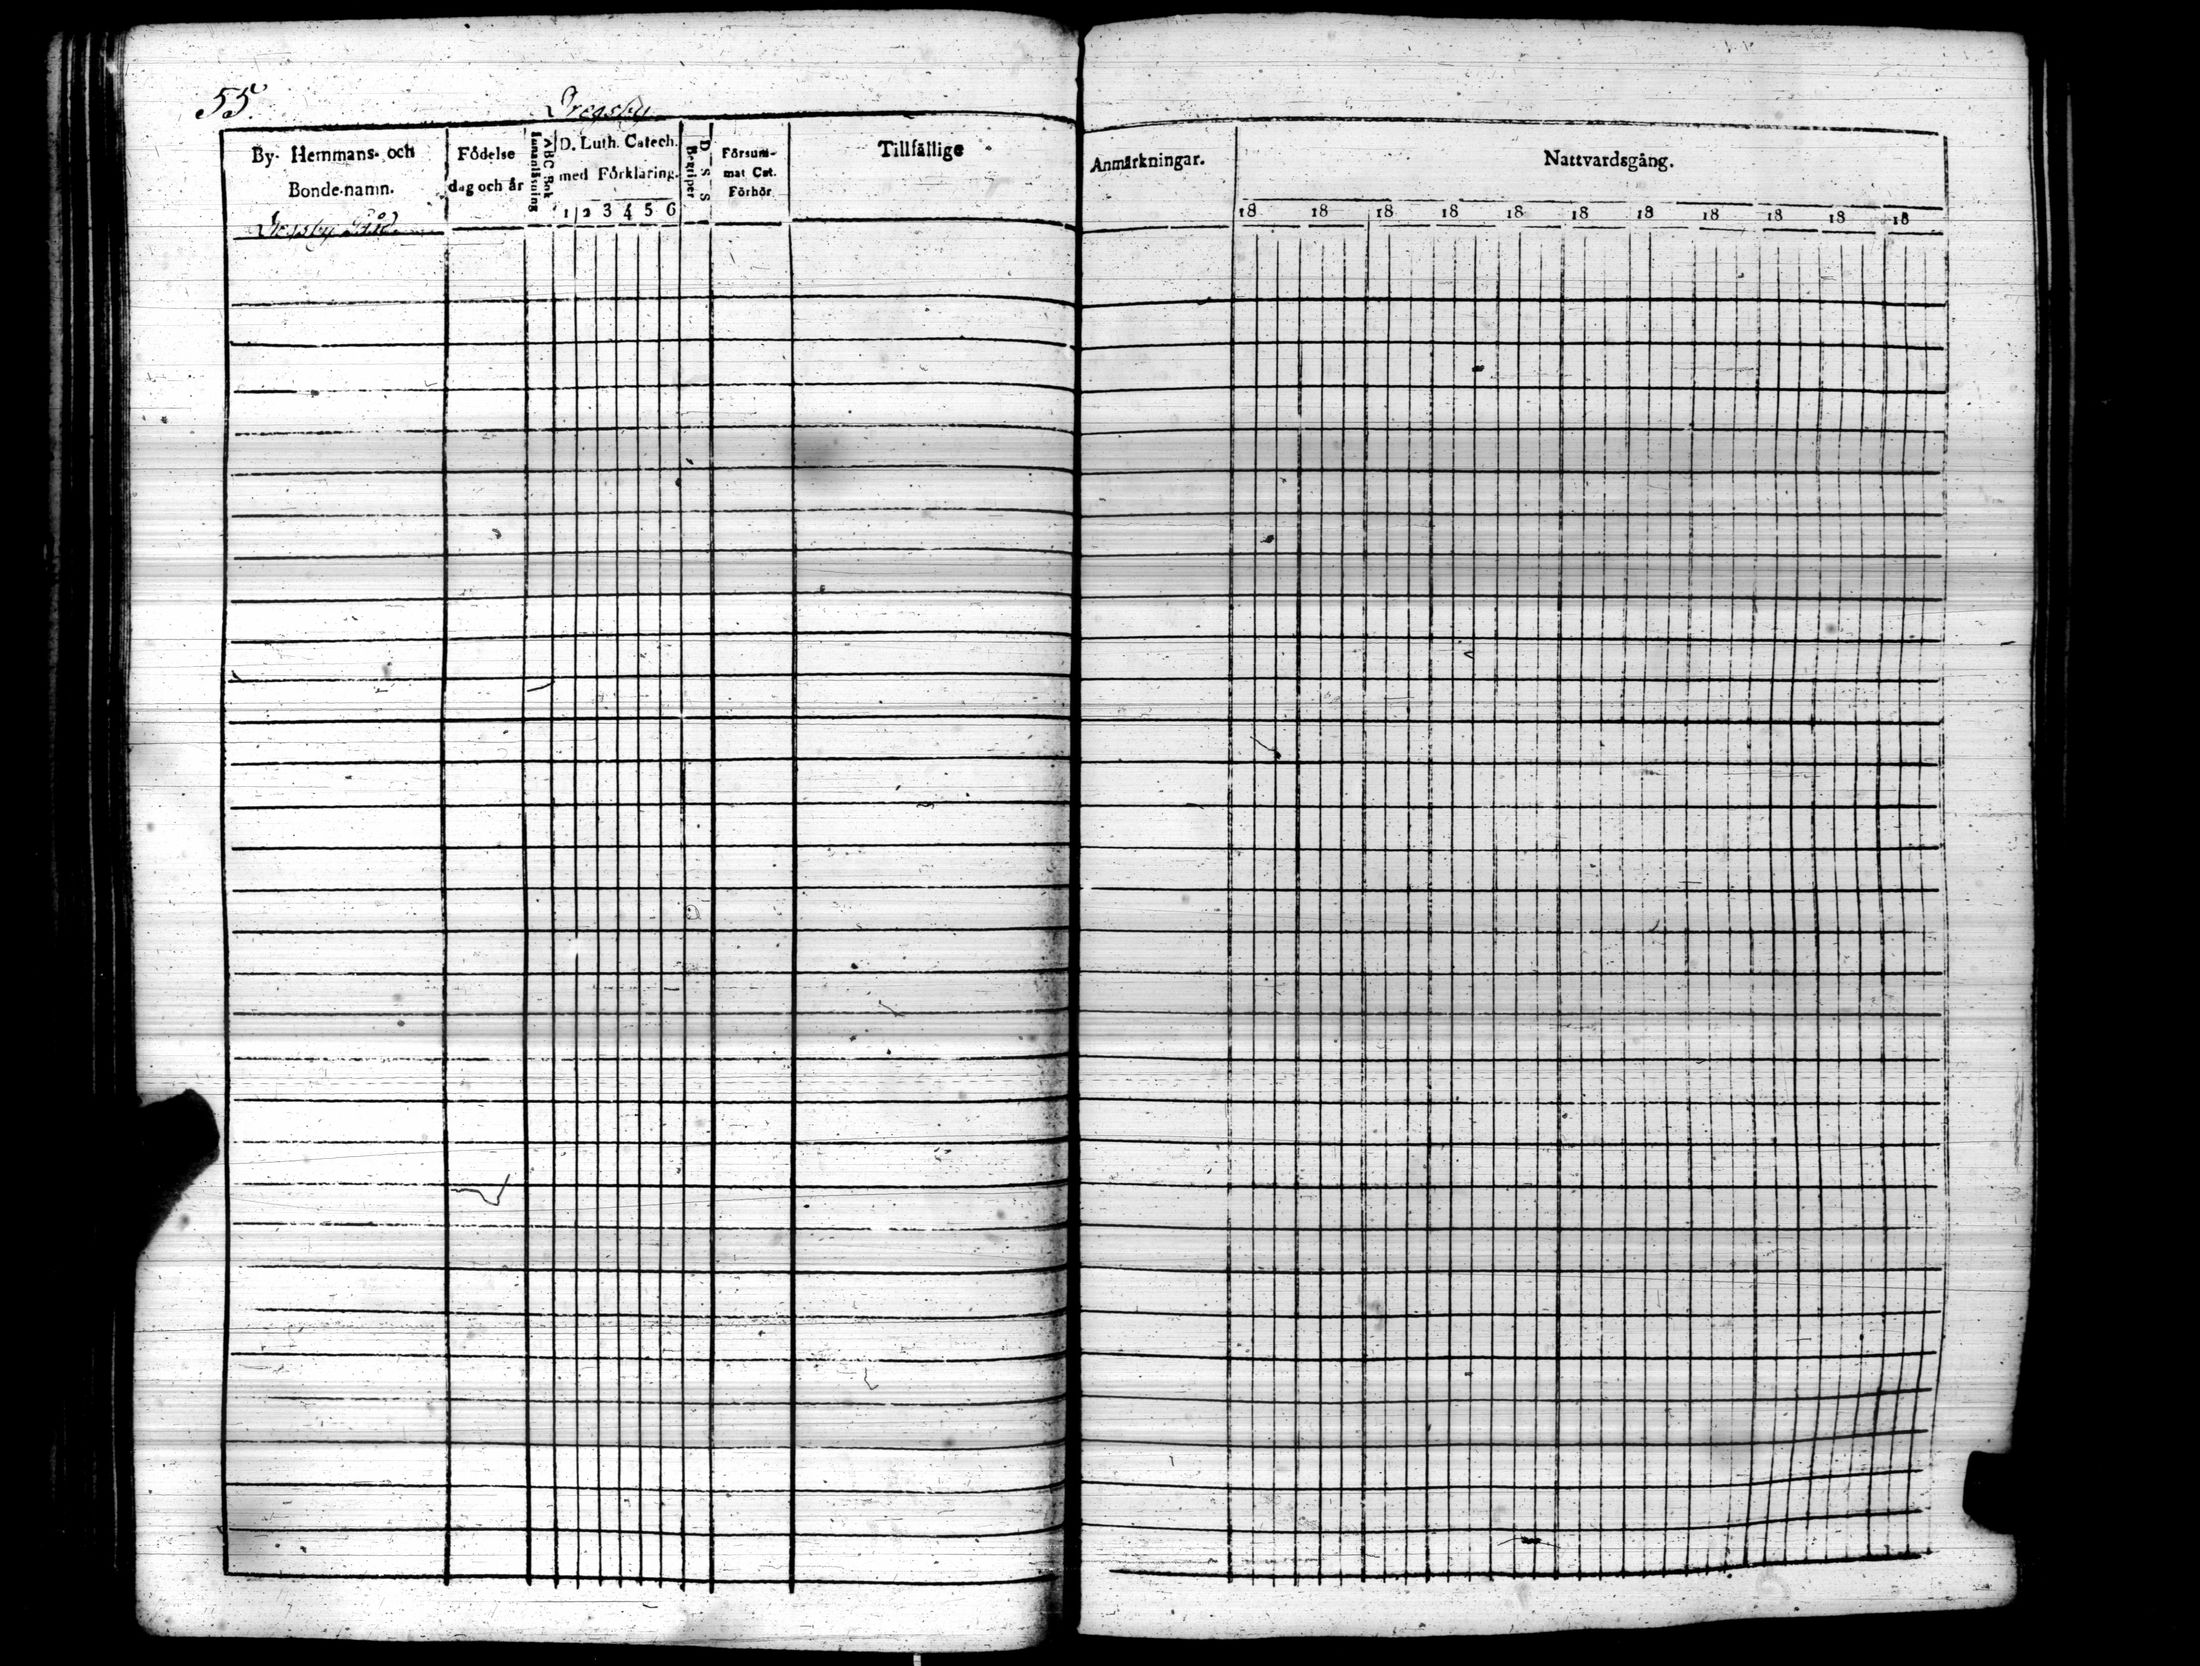 55.
Öregsby
By- Hemmans- och Bonde-namn.
Födelse dag och år
Innanläsning
ABC Bok
D. Luth. Catech. med Förklaring.
1 2 3 4 5 6
Begriper
D S S
Försummat Cat. Förhör
Tillfällige
Anmärkningar.
Nattvardsgång.
18 18 18 18 18 18 18 18 18 18 18